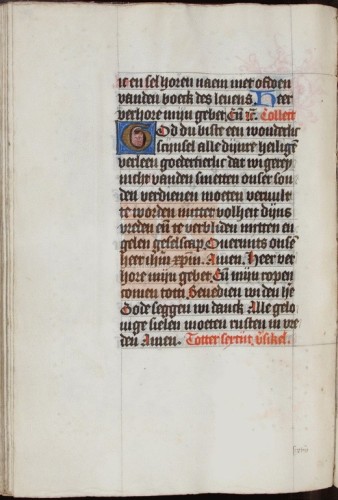 ic en sel horen naem niet ofdoen
vanden boeck des leuens. Heer
verhore mijn gebet. Eñ ic. Collect
God du biste een wonderlic
scijnsel alle dijnre heiligē
verleen goedertierlic dat wi gerey
nicht vanden smetten onser son
den verdienen moeten veruult
te worden mitter volheit dijns
vreden eñ te verbliden mitten en
gelen geselscap. Ouermits onsē
heer ihm xpm. Amen. Heer ver
hore mijn gebet. Eñ mijn ropen
comen totti. Benedien wi den hē
Gode seggen wi danck. Alle gelo
uige sielen moeten rusten in vre
den Amen. Totter sertijt vsikel.